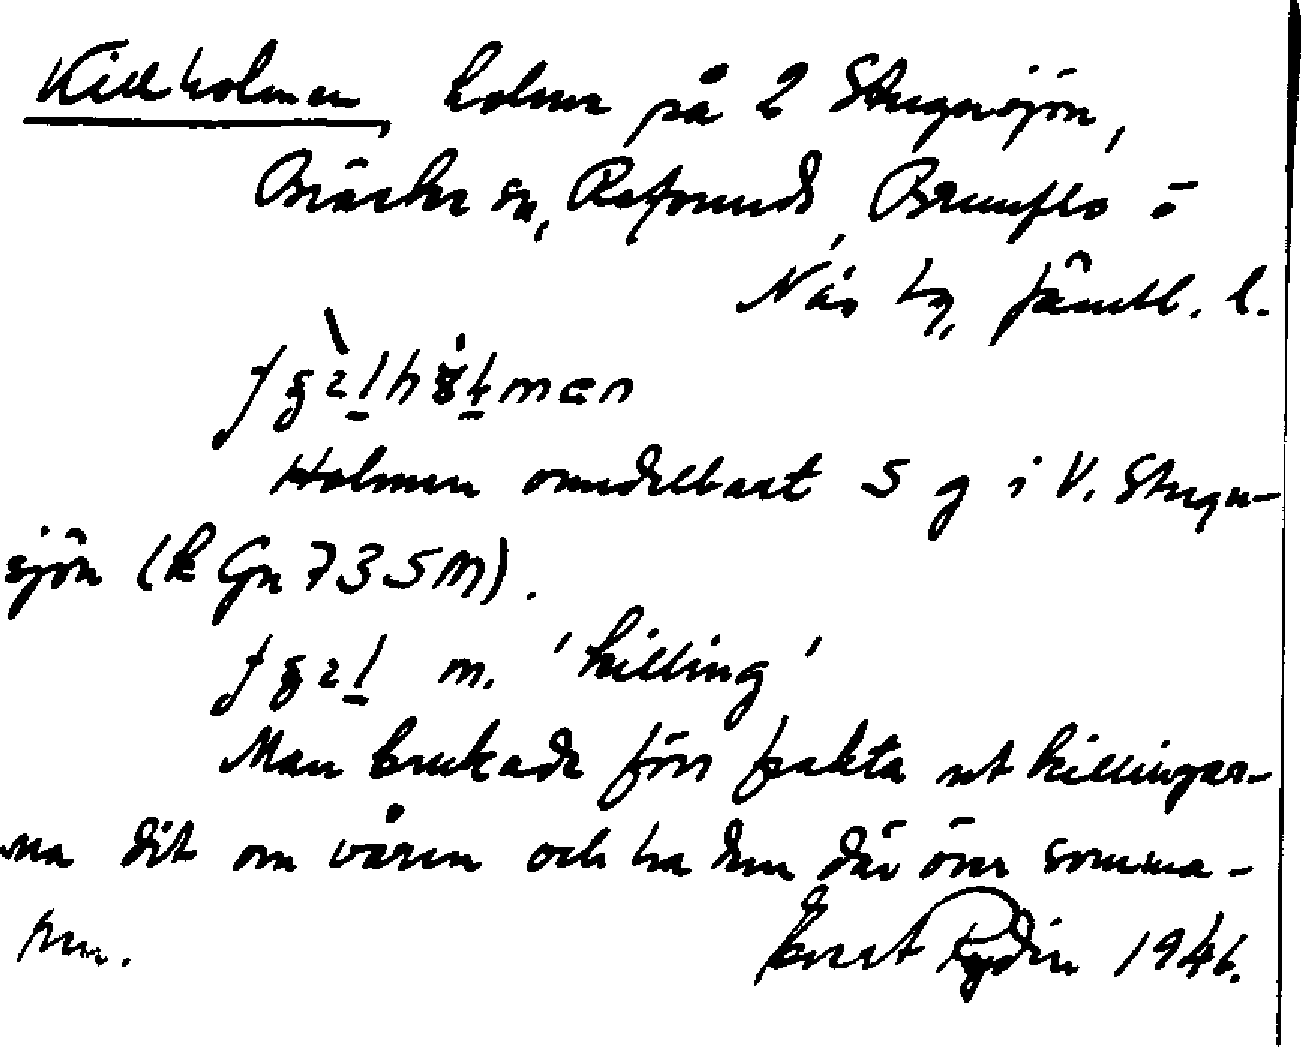 Killholmen, holme på 2 Stugusjön,
Bräcke sn, Refsunds, Brunflo o
Näs tg, Jämtl. l.
Holmen omedelbart S g i V. Stugu-
sjön (k Gn 735M).
m. 'killing'
Man brukade förr frakta ut killingar-
na dit om våren och ha dem där över somma-
ren. Ernst Rydin 1946.